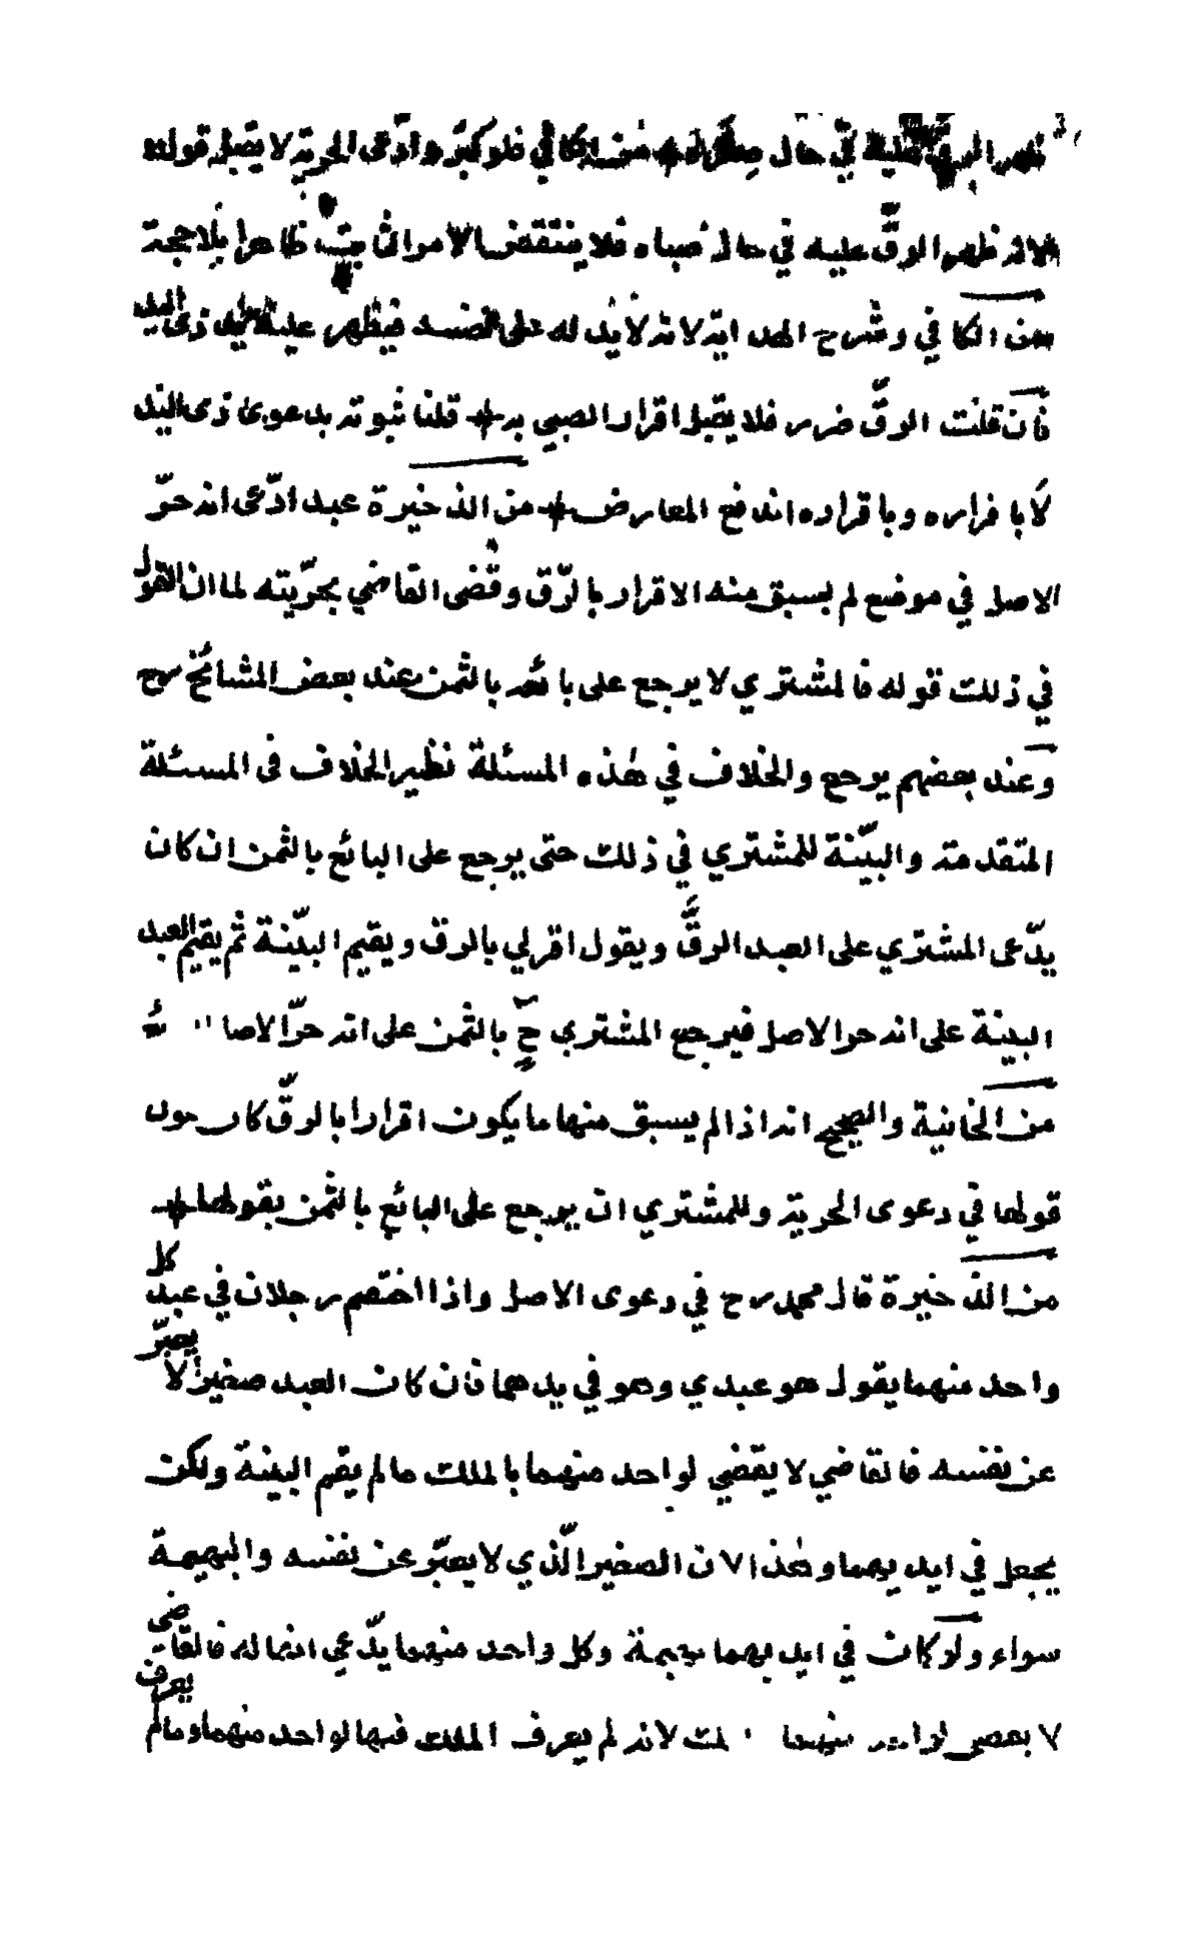 ظهر الرق عليه في حال صغره من الكافي فلو كبر وادّعى الحرية لا يقبل قوله
لانه ظهر الرقّ عليه في حال صباه فلا ينتقض الامر الثابت ظاهرا بلا حجة
من الكافي وشرح الهداية لانه لا يد له على نفسه فيظهر عليه يد ذى اليد
فان قلت الرقّ ضرر فلا يقبل اقرار الصبي به قلنا ثبوته بدعوى ذى اليد
لا باقراره وباقراره اندفع المعارض من الذخيرة عبد ادّعى انه حرّ
الاصل في موضع لم يسبق منه الاقرار بالرّق وقضى القاضي بحرّيته لما ان القول
في ذلك قوله فالمشتري لا يرجع على بائعه بالثمن عند بعض المشائخ رح
وعند بعضهم يرجع والخلاف في هذه المسئلة نظير الخلاف فى المسئلة
المتقدمة والبيّنة للمشتري في ذلك حتى يرجع على البائع بالثمن ان كان
يدّعى المشتري على العبد الرقّ ويقول اقر لي بالرق ويقيم البيّنة ثم يقيم العبد
البينة على انه حر الاصل فيرجع المشتري ح بالثمن على انه حرّ الاصل
من الخانية والصحيح انه اذا لم يسبق منها ما يكون اقرارا بالرقّ كان القول
قولها في دعوى الحرية وللمشتري ان يرجع على البائع بالثمن بقولها
من الذخيرة قال محمد رح في دعوى الاصل واذا اختصم رجلان في عبد كل
واحد منهما يقول هو عبدي وهو في يدهما فان كان العبد صغيرا لا يعبّر
عن نفسه فالقاضي لا يقضي لواحد منهما بالملك ما لم يقم البينة ولكن
يجعل في ايديهما وهذا لان الصغير الّذي لا يعبّر عن نفسه والبهيمة
سواء ولو كان في ايديهما بهيمة وكل واحد منهما يدّعي انها له فالقاضى
لا يقضي لواحد منهما لانه لم يعرف الملك فيها لواحد منهما وما لم يعرف